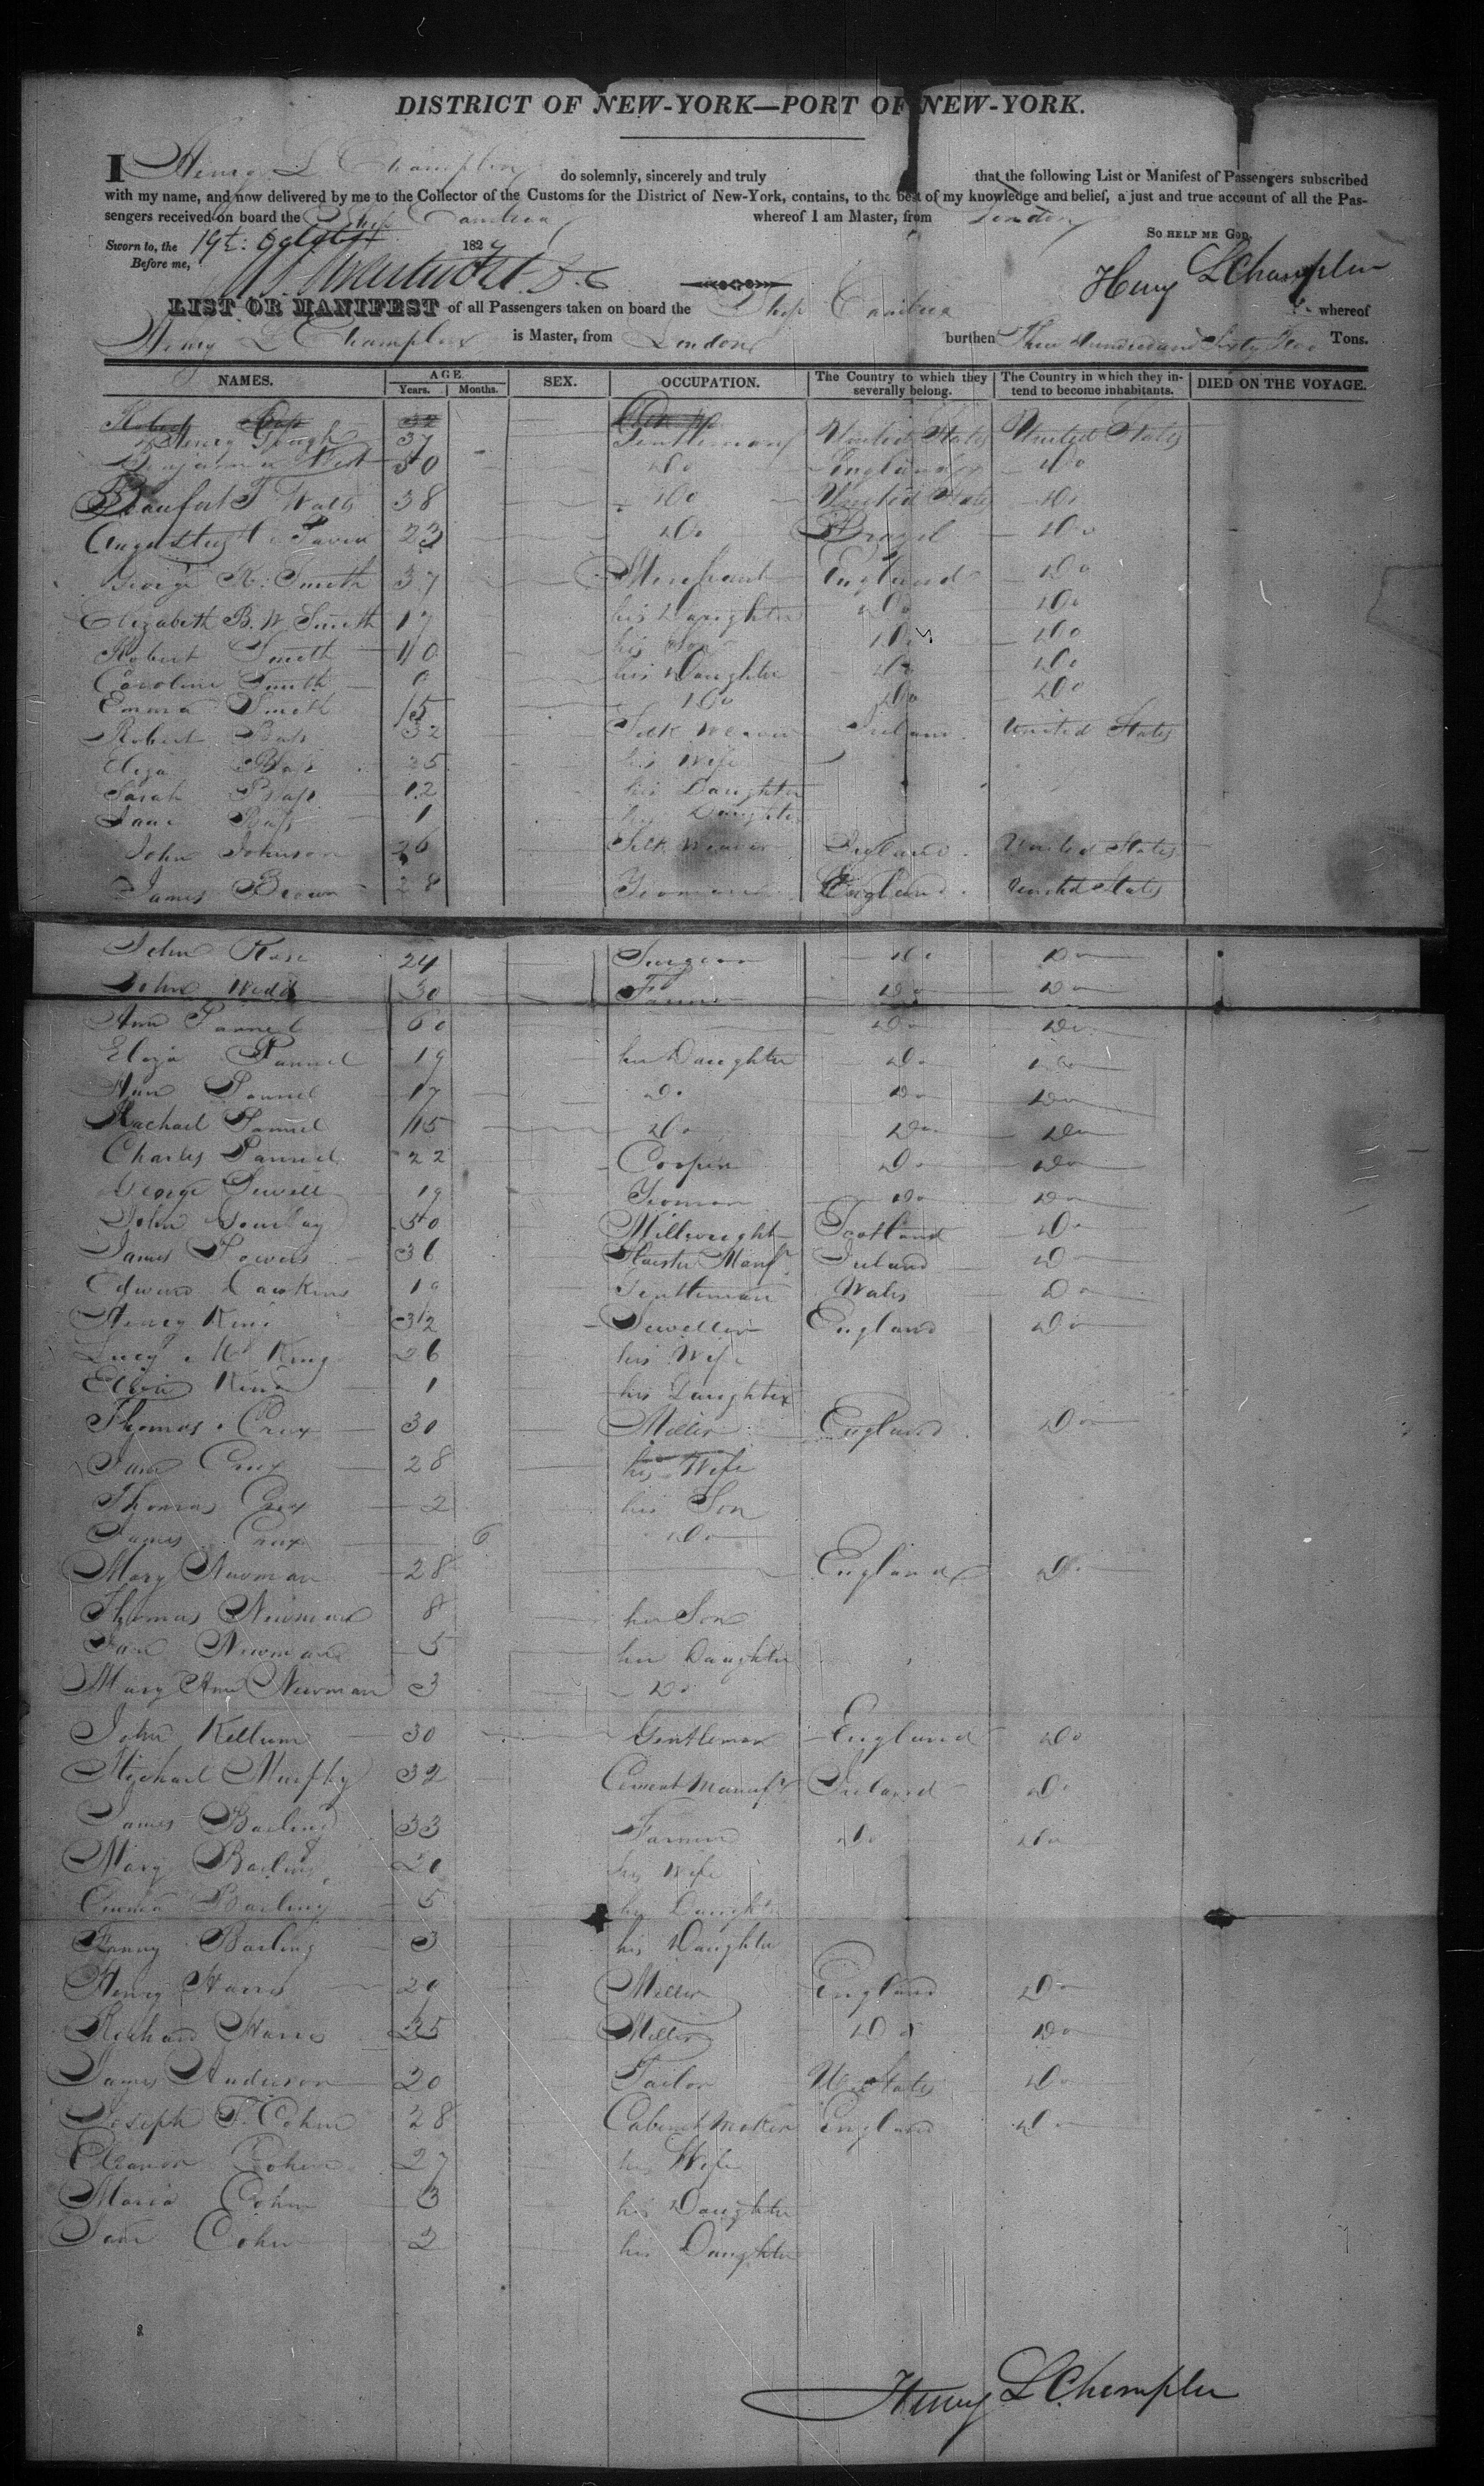 DISTRICT OF NEW-YORK—PORT OF NEW-YORK.
I Henry L Champlin do solemnly, sincerely and truly that the following List or Manifest of Passengers subscribed
with my name, and now delivered by me to the Collector of the Customs for the District of New-York, contains, to the best of my knowledge and belief, a just and true account of all the Pas-
sengers received on board the Ship whereof I am Master, from London
So help me God,
Sworn to, the 19th: October 182
Before me,
Henry L Champlin
LIST OR MANIFEST of all Passengers taken on board the Ship whereof
Henry L Champlin is Master, from London burthen Three Hundred and Sixty Tons.
NAMES. AGE. Years. Months. SEX. OCCUPATION. The Country to which they severally belong. The Country in which they in-tend to become inhabitants. DIED ON THE VOYAGE.
Robert Bass 32
Henry Gough 37 Gentleman United States United States
Benjamin West 50 Do England Do
Beaufort T Watts 38 Do United States Do
Augustus 23 Do Brazil Do
George R. Smith 37 Merchant England Do
Elizabeth B. W. Smith 17 his Daughter Do Do
Robert Smith 10 his Son Do Do
Caroline Smith 9 his Daughter Do Do
Emma Smith 15 Do Do Do
Robert Bass 32 Silk Weaver Ireland United States
Eliza Bass 25 his Wife
Sarah Bass 12 his Daughter
Jane Bass 1 his Daughter
John Johnson 26 Silk Weaver England United States
James Brown 28 Yeoman England United States
John Rose 24 Surgeon Do Do
John Wedd 30 Farmer Do Do
Ann Pannel 60 Do Do
Eliza Pannel 19 her Daughter Do Do
Ann Pannel 17 Do Do Do
Rachael Pannel 15 Do Do Do
Charles Pannel 22 Cooper Do Do
George Sewell 19 Yeoman Do Do
John Gourlay 50 Millwright Scotland Do
James Powers 36 Plaister Manfr Ireland Do
Edward Dawkins 19 Gentleman Wales Do
Henry King 32 Jeweller England Do
Lucy M King 26 his Wife
Eliza King 1 his Daughter
Thomas Crux 30 Miller England Do
Jane Crux 28 his Wife
Thomas Crux 2 his Son
James Crux 6 Do
Mary Newman 28 England Do
Thomas Newman 8 her Son
Jane Newman 5 her Daughter
Mary Ann Newman 3 Do
John Kellum 30 Gentleman England Do
Michael Murphy 32 Cement Manufr Ireland Do
James Barling 33 Farmer Do Do
Mary Barling his Wife
Emma Barling 5 his Daughter
Fanny Barling 3 his Daughter
Henry Harris 29 Miller England Do
Richard Harris 25 Miller Do Do
James Anderson 20 Tailor Un States Do
Joseph F. Cohen 28 Cabinet Maker England Do
Eleanor Cohen 27 his Wife
Maria Cohen 3 his Daughter
Jane Cohen 2 his Daughter
Henry L Champlin